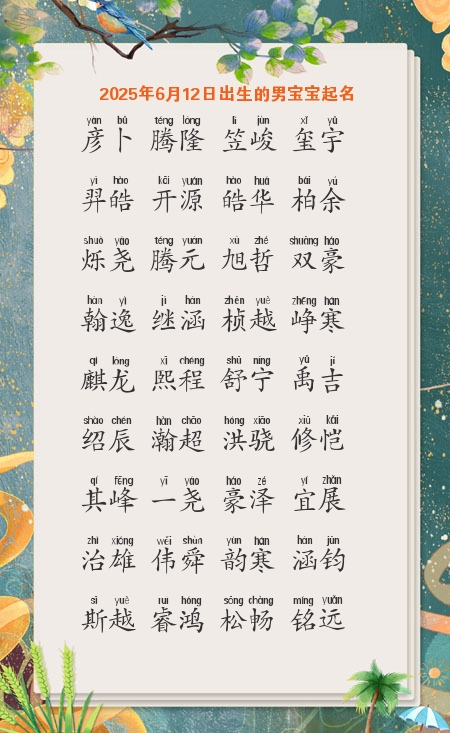 2025年6月12日出生的男宝宝起名
yàn bǔ téng lóng lì jùn xǐ yǔ
彦卜 腾隆 笠峻 玺宇
yì hào kāi yuán hào huá bǎi yú
羿皓 开源 皓华 柏余
shuò yáo téng yuán xù zhé shuāng háo
烁尧 腾元 旭哲 双豪
hàn yì jì hán zhēn yuè zhēng hán
翰逸 继涵 桢越 峥寒
qí lóng xī chéng shū níng yǔ jí
麒龙 熙程 舒宁 禹吉
shào chén hàn chāo hóng xiāo xiū kǎi
绍辰 瀚超 洪骁 修恺
qí fēng yī yáo háo zé yí zhǎn
其峰 一尧 豪泽 宜展
zhì xióng wěi shùn yùn hán hán jūn
治雄 伟舜 韵寒 涵钧
sī yuè ruì hóng sōng chàng míng yuǎn
斯越 睿鸿 松畅 铭远